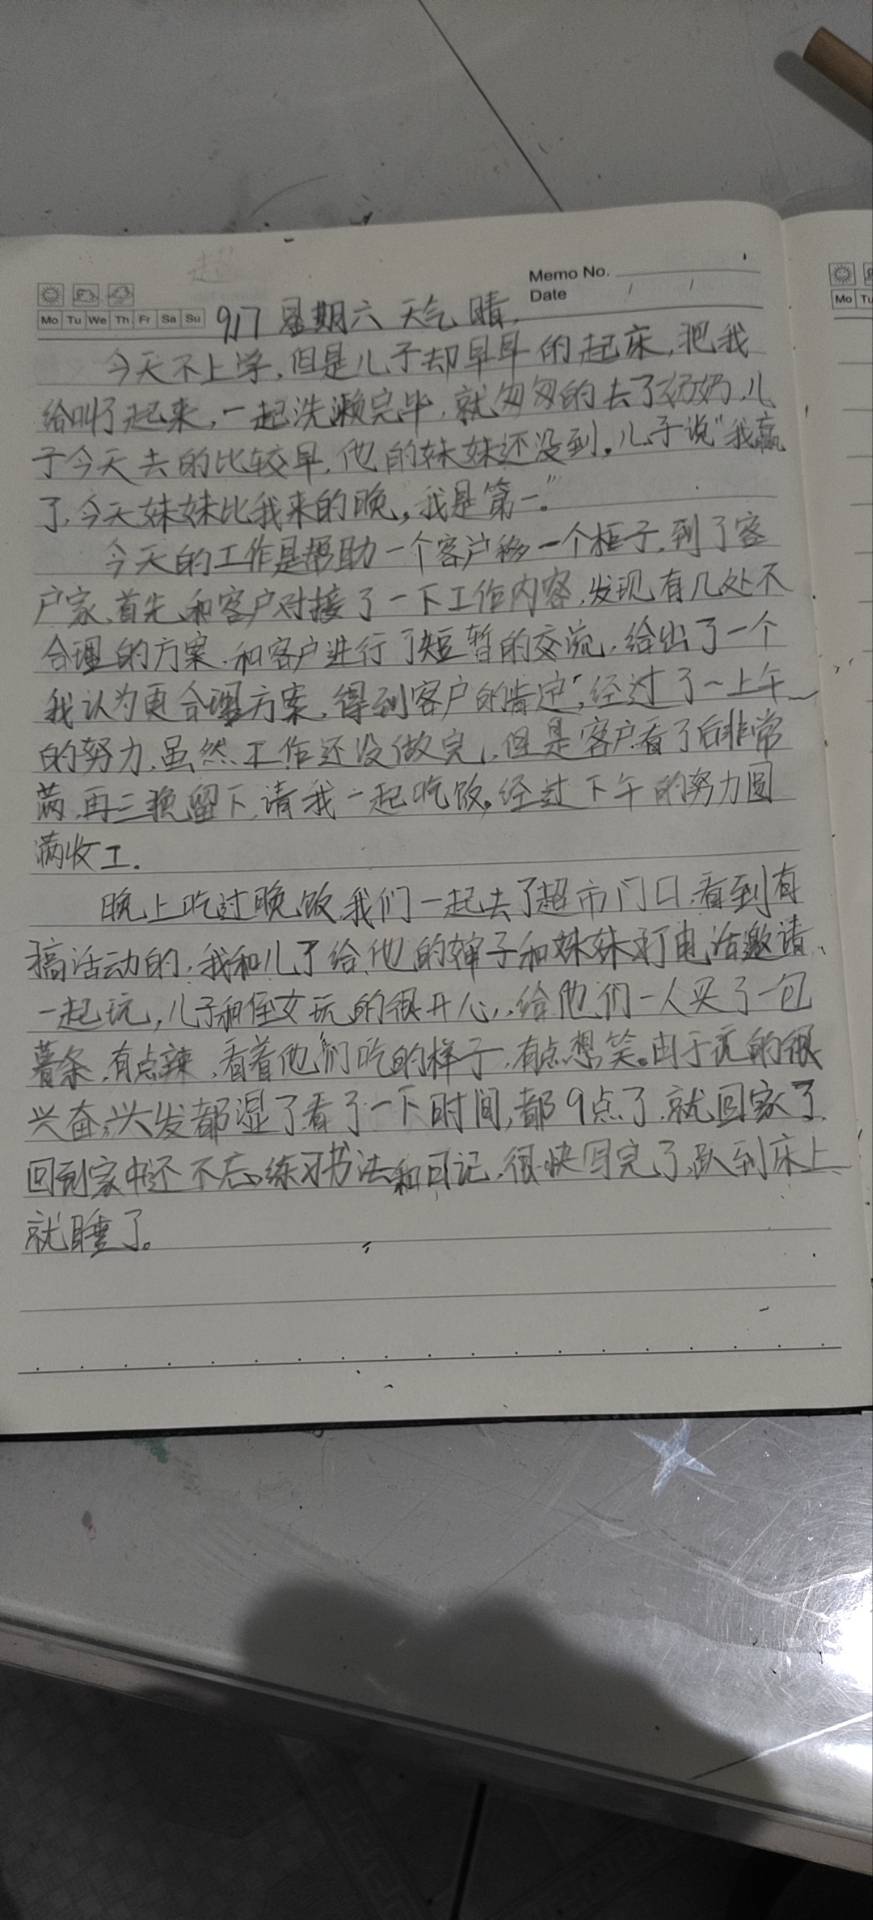 Memo No.
Date / /
Mo Tu We Th Fr Sa Su
Mo Tu
9.17 星期六 天气晴.
今天不上学,但是儿子却早早的起床,把我
给叫了起来,一起洗濑完毕,就匆匆的去了奶奶,儿
子今天去的比较早,他的妹妹还没到。儿子说"我赢
了,今天妹妹比我来的晚,我是第一。"
今天的工作是帮助一个客户移一个柜子,到了客
户家,首先和客户对接了一下工作内容,发现有几处不
合理的方案,和客户进行了短暂的交流,给出了一个
我认为更合理方案,得到客户的肯定,经过了一上午
的努力,虽然工作还没做完,但是客户看了后非常
满,再三挽留下,请我一起吃饭。经过下午的努力圆
满收工.
晚上吃过晚饭,我们一起去了超市门口,看到有
搞活动的,我和儿子给他的婶子和妹妹打电话邀请、
一起玩,儿子和侄女玩的很开心,给他们一人买了一包
薯条,有点辣,看着他们吃的样子,有点想笑。由于玩的很
兴奋,头发都湿了看了一下时间,都9点了,就回家了
回到家中还不忘练习书法和日记,很快写完了,趴到床上
就睡了。